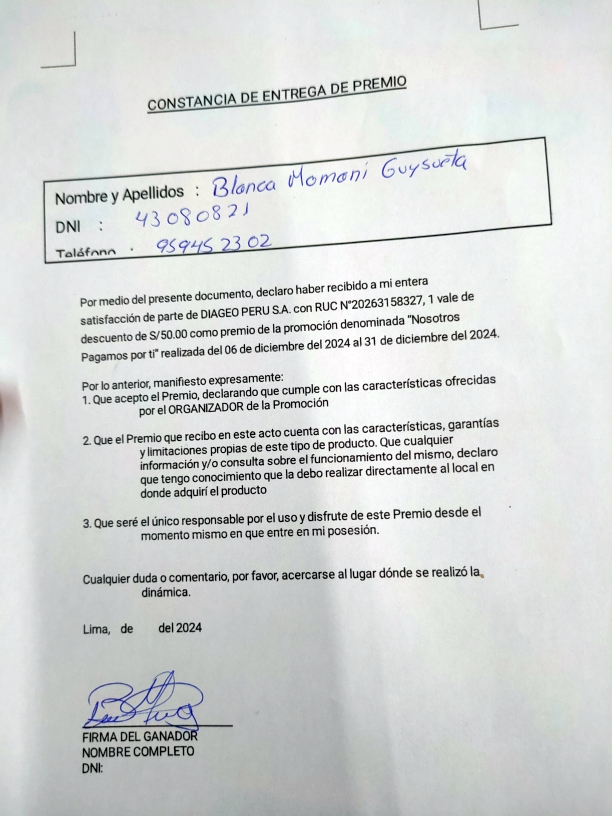 CONSTANCIA DE ENTREGA DE PREMIO
Nombre y Apellidos : Blanca Momani Guysueta
DNI : 43080821
Teléfono : 959452302
Por medio del presente documento, declaro haber recibido a mi entera
satisfacción de parte de DIAGEO PERU S.A. con RUC N°20263158327, 1 vale de
descuento de S/50.00 como premio de la promoción denominada "Nosotros
Pagamos por ti" realizada del 06 de diciembre del 2024 al 31 de diciembre del 2024.
Por lo anterior, manifiesto expresamente:
1. Que acepto el Premio, declarando que cumple con las características ofrecidas
por el ORGANIZADOR de la Promoción
2. Que el Premio que recibo en este acto cuenta con las características, garantías
y limitaciones propias de este tipo de producto. Que cualquier
información y/o consulta sobre el funcionamiento del mismo, declaro
que tengo conocimiento que la debo realizar directamente al local en
donde adquirí el producto
3. Que seré el único responsable por el uso y disfrute de este Premio desde el
momento mismo en que entre en mi posesión.
Cualquier duda o comentario, por favor, acercarse al lugar dónde se realizó la
dinámica.
Lima, de del 2024
FIRMA DEL GANADOR
NOMBRE COMPLETO
DNI: